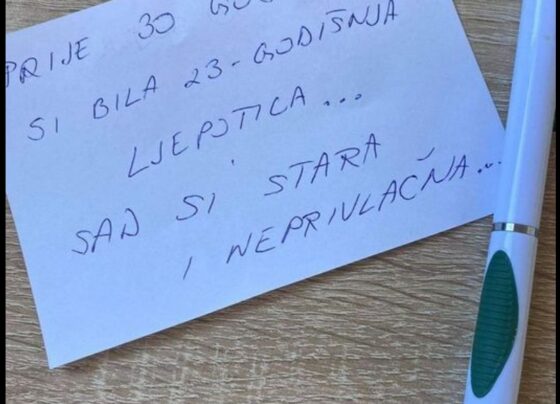 PRIJE 30
SI BILA 23-GODIŠNJA
LJEPOTICA...
SAD SI STARA
I NEPRIVLAČNA...